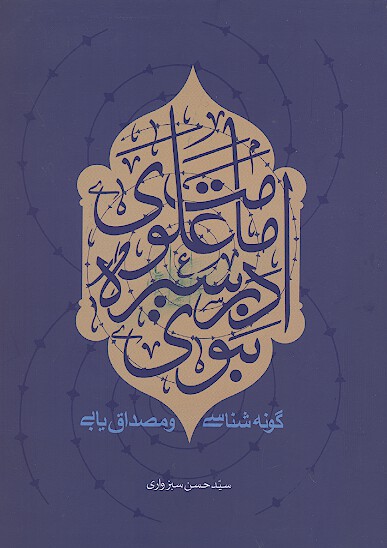 امامت علوی
در سیره
نبوی
گونه شناسی و مصداق یابی
سیّد حسن سبزواری